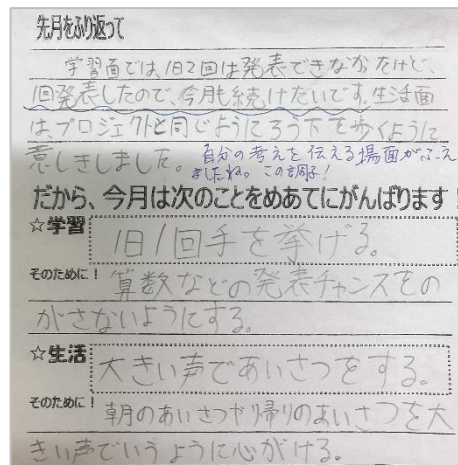 先月をふり返って
学習面では、1日2回は発表できなかたけど、
1回発表したので、今月も続けたいです。生活面
は、プロジェクトと同じようにろう下を歩くように
意しきしました。自分の考えを伝える場面がふえ
ましたね。この調子!
だから、今月は次のことをめあてにがんばります!
☆学習 1日1回手を挙げる。
そのために! 算数などの発表チャンスをの
がさないようにする。
☆生活 大きい声であいさつをする。
そのために! 朝のあいさつや帰りのあいさつを大
きい声でいうように心がける。